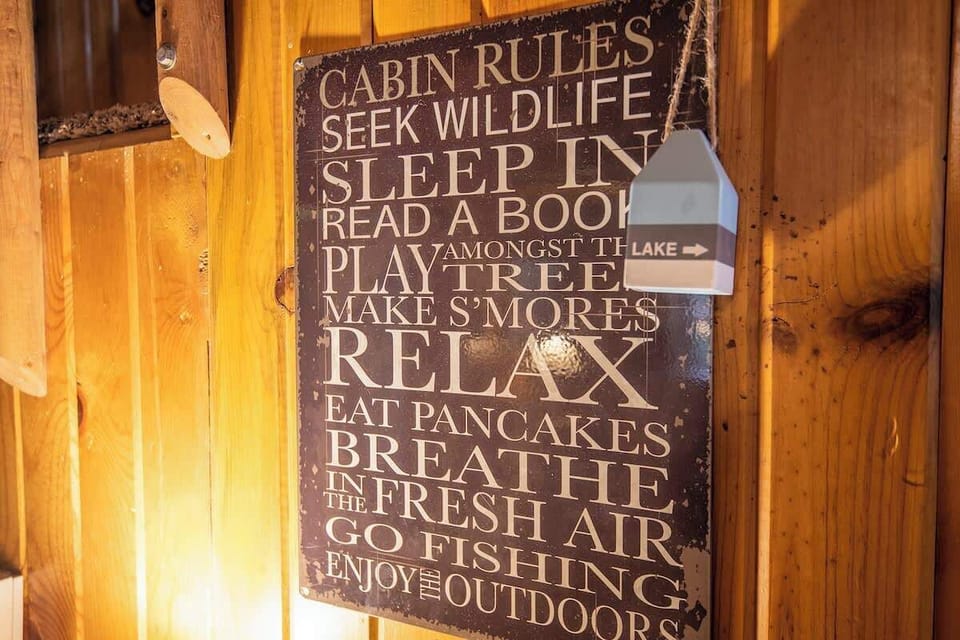 CABIN RULES
SEEK WILDLIFE
SLEEP IN
READ A BOOK
PLAY AMONGST TH
TREE
MAKE S'MORES
RELAX
EAT PANCAKES
BREATHE
IN THE FRESH AIR
GO FISHING
ENJOY THE OUTDOORS
LAKE →